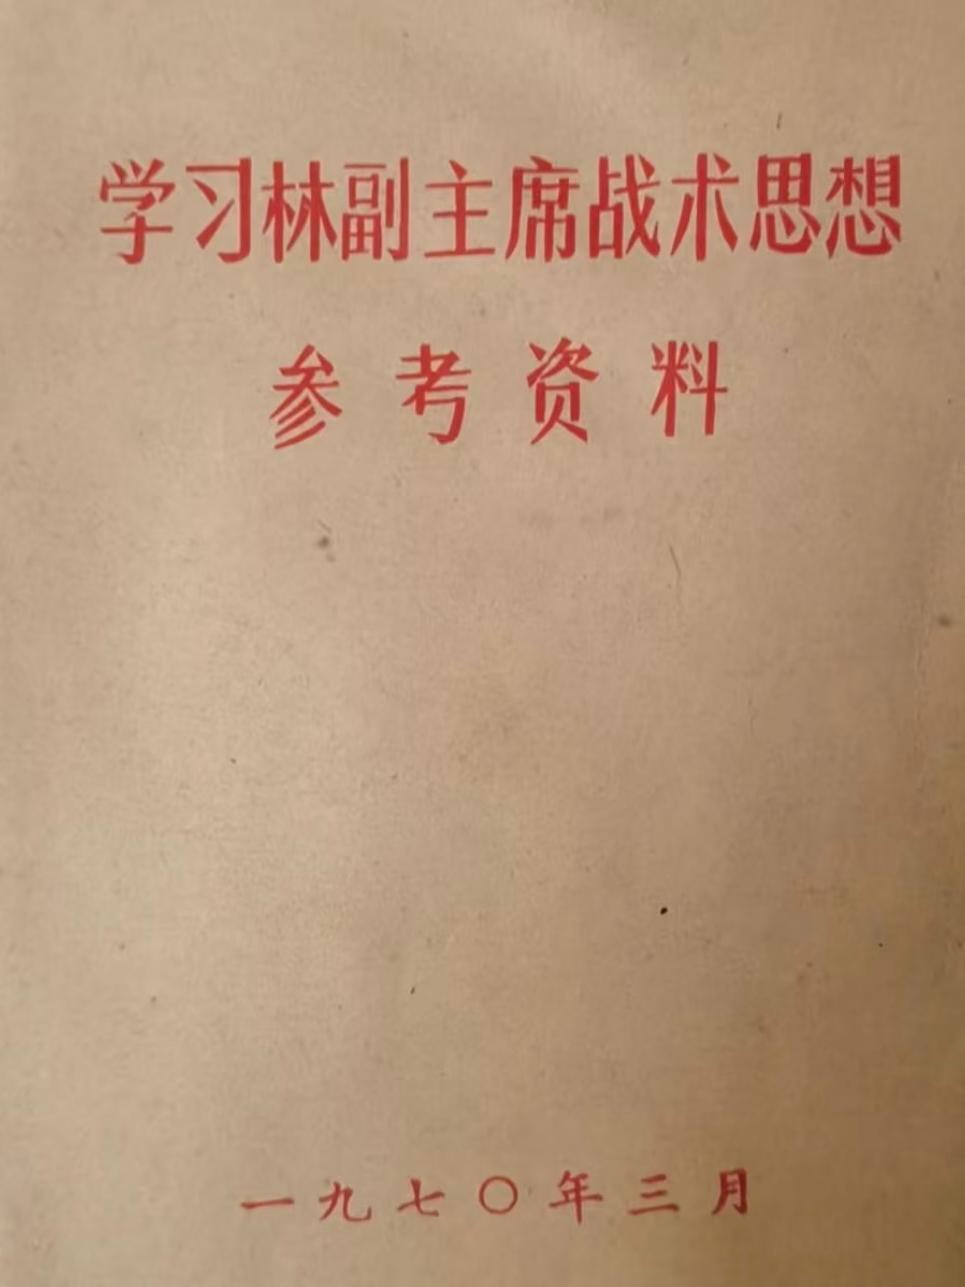 学习林副主席战术思想
参考资料
一九七〇年三月